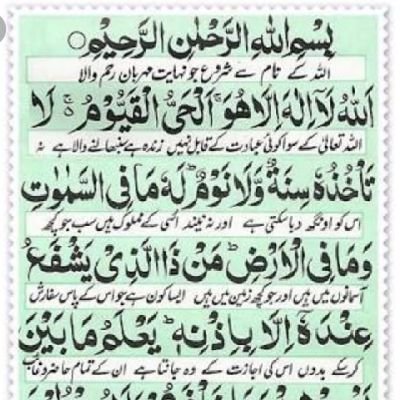 بِسْمِ اللهِ الرَّحْمٰنِ الرَّحِيْمِ
اللہ کے نام سے شروع جو نہایت مہربان رحم والا
اَللهُ لَآ اِلٰهَ اِلَّا هُوَ ۚ اَلْحَيُّ الْقَيُّوْمُ ۚ لَا
اللہ تعالیٰ کے سوا کوئی عبادت کے قابل نہیں زندہ ہے سنبھالنے والا ہے نہ
تَاْخُذُهٗ سِنَةٌ وَّلَا نَوْمٌ ؕ لَهٗ مَا فِي السَّمٰوٰتِ
اس کو اونگھ دبا سکتی ہے اور نہ نیند اسی کے مملوک ہیں سب جو کچھ
وَمَا فِي الْاَرْضِ ؕ مَنْ ذَا الَّذِيْ يَشْفَعُ
آسمانوں میں ہیں اور جو کچھ زمین میں ہیں ایسا کون ہے جو اس کے پاس سفارش
عِنْدَهٗٓ اِلَّا بِاِذْنِهٖ ؕ يَعْلَمُ مَا بَيْنَ
کر سکے بدوں اس کی اجازت کے وہ جانتا ہے ان کے تمام حاضر و غائب